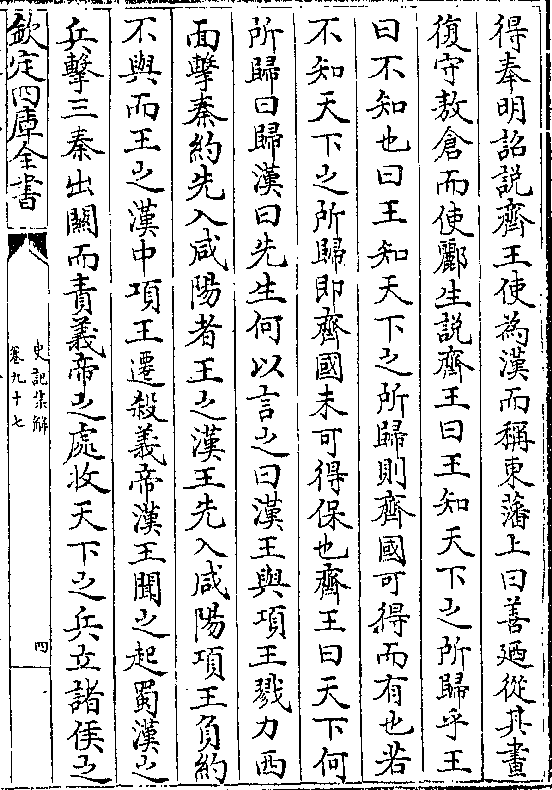 得奉明詔説齊王使為漢而稱東藩上曰善廼從其畫
復守敖倉而使酈生説齊王曰王知天下之所歸乎王
曰不知也曰王知天下之所歸則齊國可得而有也若
不知天下之所歸即齊國未可得保也齊王曰天下何
所歸曰歸漢曰先生何以言之曰漢王與項王戮力西
面擊秦約先入咸陽者王之漢王先入咸陽項王負約
不與而王之漢中項王遷殺義帝漢王聞之起蜀漢之
兵擊三秦出關而責義帝之處收天下之兵立諸侯之
欽定四庫全書
史記集解
卷九十七
四